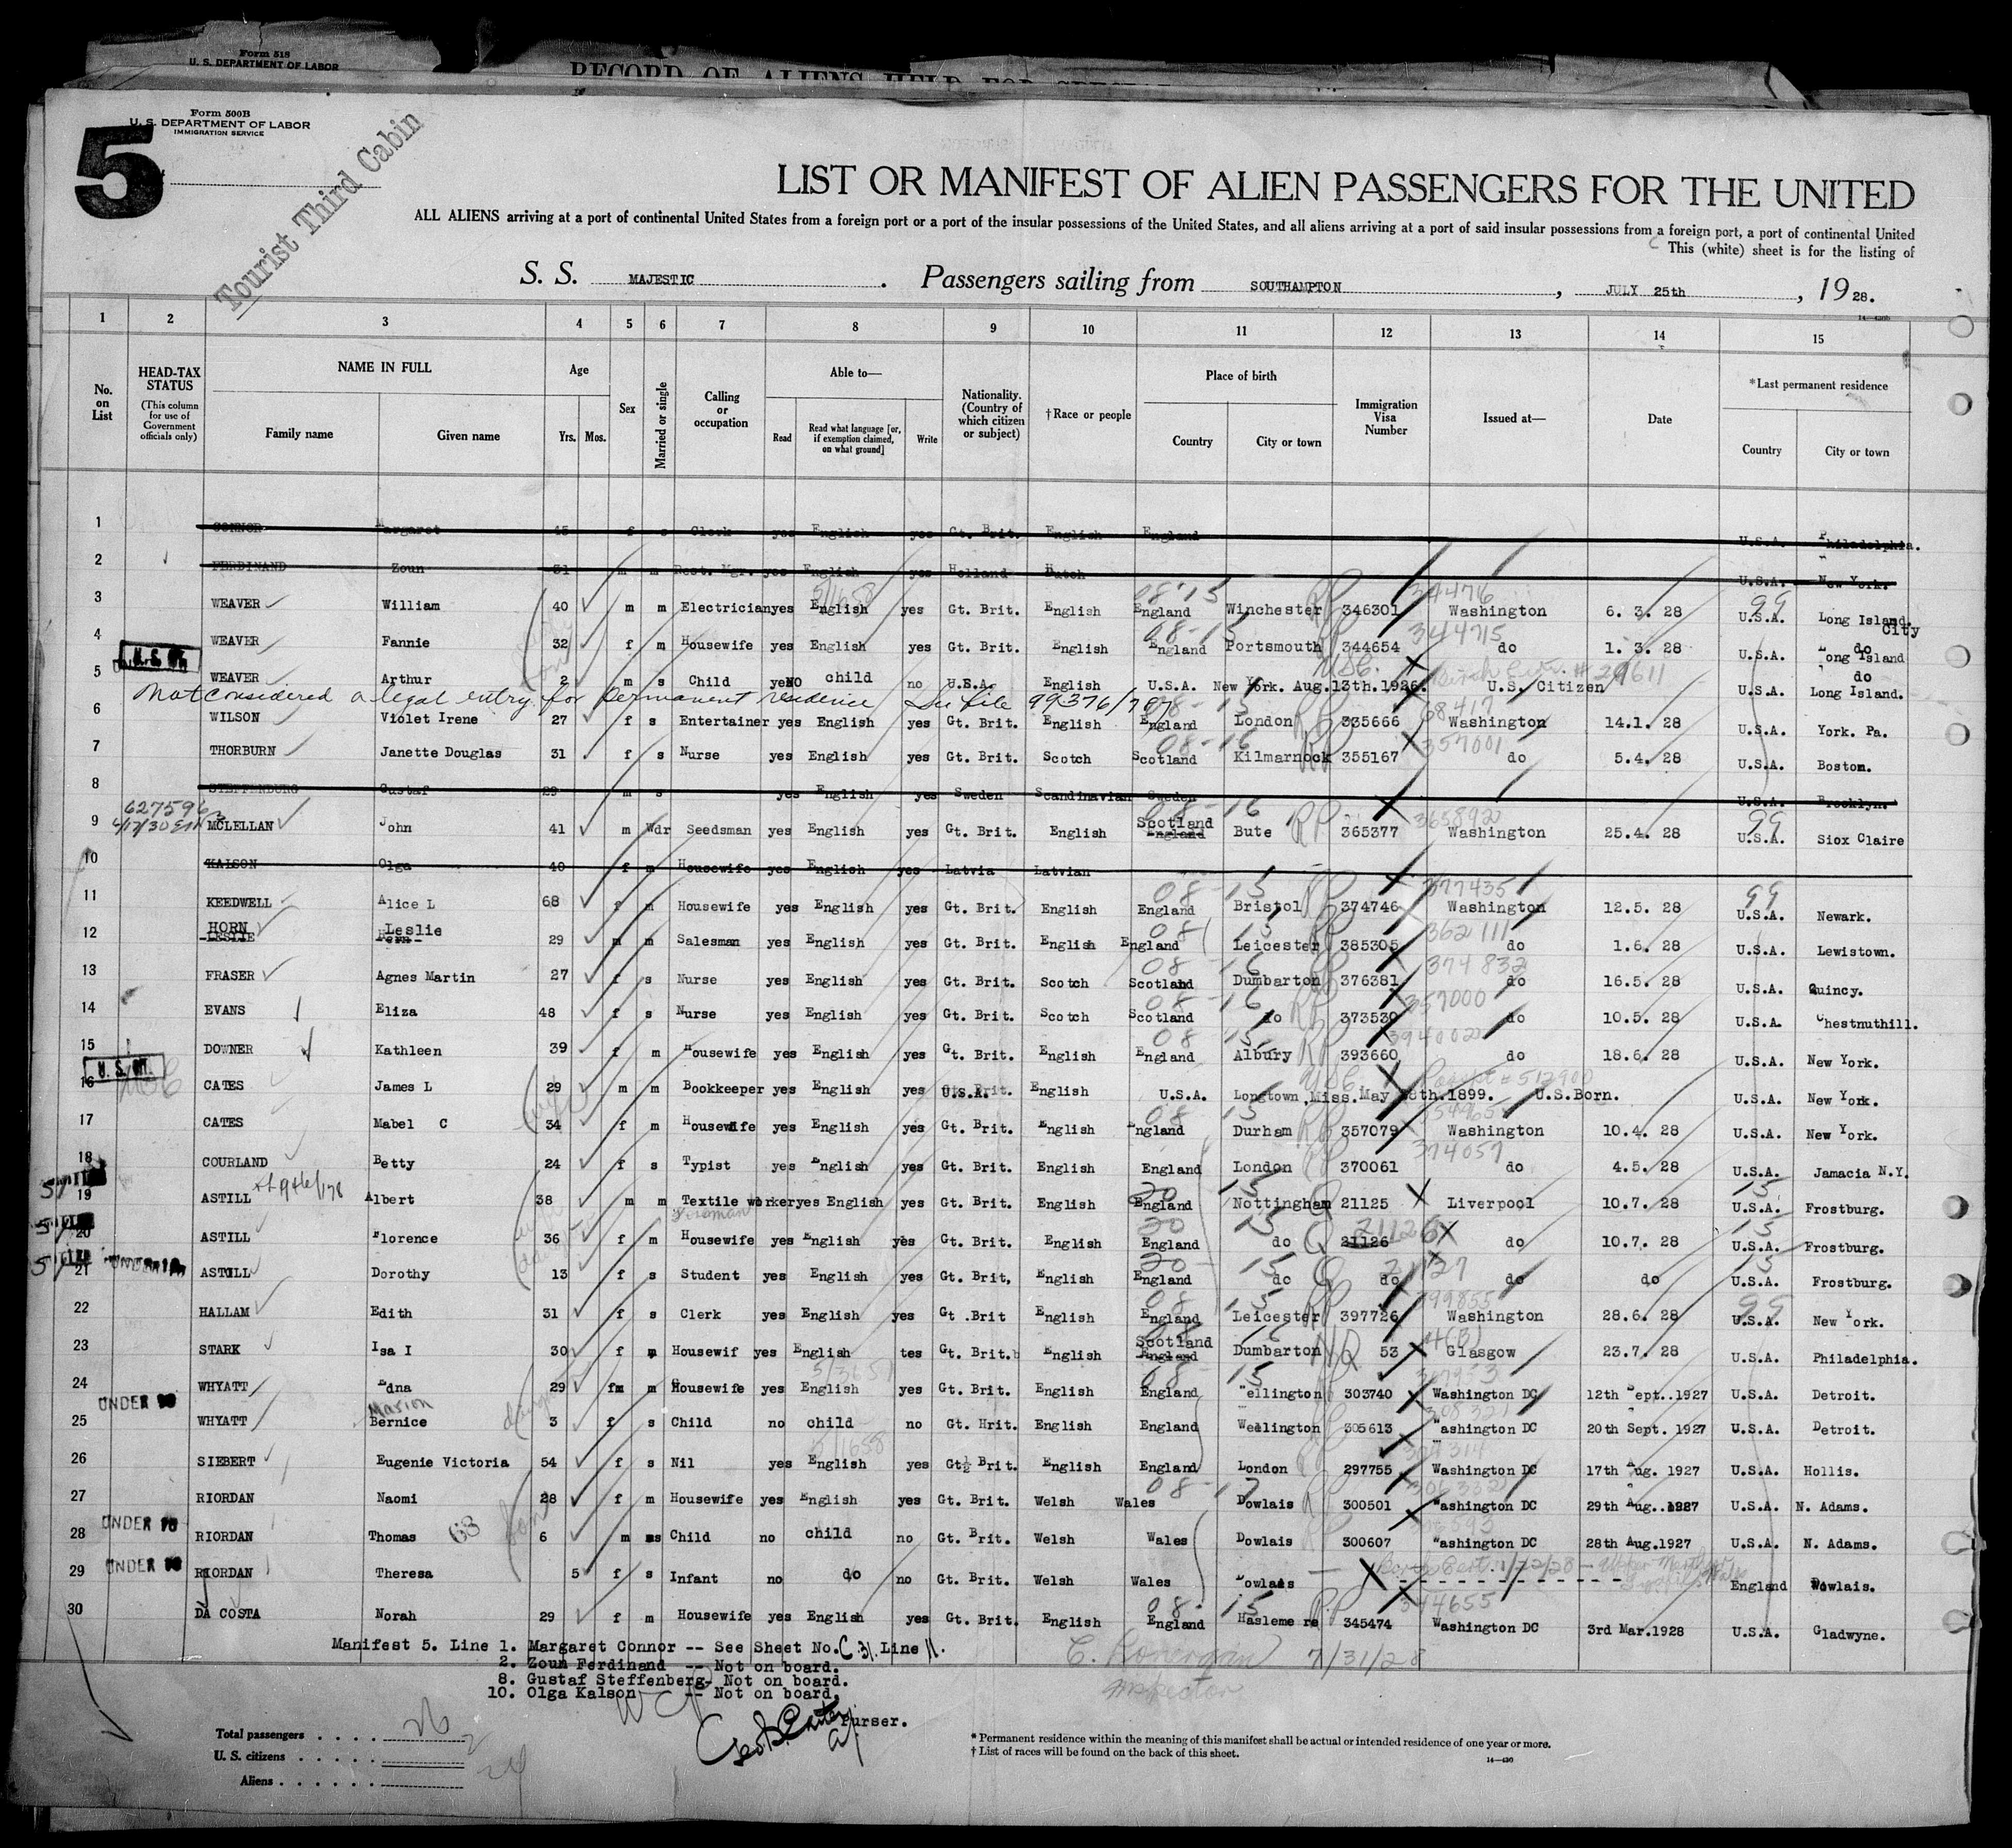 Form 518
U. S. DEPARTMENT OF LABOR
RECORD OF ALIENS HELD FOR
Form 500B
U. S. DEPARTMENT OF LABOR
IMMIGRATION SERVICE
5
Tourist Third Cabin
LIST OR MANIFEST OF ALIEN PASSENGERS FOR THE UNITED
ALL ALIENS arriving at a port of continental United States from a foreign port or a port of the insular possessions of the United States, and all aliens arriving at a port of said insular possessions from a foreign port, a port of continental United
This (white) sheet is for the listing of
S. S. MAJESTIC. Passengers sailing from SOUTHAMPTON, JULY 25th, 1928.
1 2 3 4 5 6 7 8 9 10 11 12 13 14 15
No. on List
HEAD-TAX STATUS
(This column for use of Government officials only)
NAME IN FULL
Family name Given name
Age
Yrs. Mos.
Sex
Married or single
Calling or occupation
Able to—
Read Read what language [or, if exemption claimed, on what ground] Write
Nationality. (Country of which citizen or subject)
†Race or people
Place of birth
Country City or town
Immigration Visa Number
Issued at—
Date
*Last permanent residence
Country City or town
1 CONNOR Margaret 45 f s Clerk yes English yes Gt. Brit. English England U.S.A. Philadelphia.
2 FERDINAND Zoun 31 m m Rest. Mgr. yes English yes Holland Dutch U.S.A. New York.
3 WEAVER William 40 m m Electrician yes English yes Gt. Brit. English England Winchester 346301 Washington 6. 3. 28 U.S.A. Long Island City
4 WEAVER Fannie 32 f m Housewife yes English yes Gt. Brit. English England Portsmouth 344654 do 1. 3. 28 U.S.A. Long Island do
5 WEAVER Arthur 2 m s Child NO child no U.S.A. English U.S.A. New York. Aug.13th.1926. U.S. Citizen U.S.A. Long Island. do
Not considered a legal entry for permanent residence See file 99376/767
6 WILSON Violet Irene 27 f s Entertainer yes English yes Gt. Brit. English England London 335666 Washington 14.1. 28 U.S.A. York. Pa.
7 THORBURN Janette Douglas 31 f s Nurse yes English yes Gt. Brit. Scotch Scotland Kilmarnock 355167 do 5.4. 28 U.S.A. Boston.
8 STEFFENBURG Gustaf 29 m s yes English yes Sweden Scandinavian Sweden U.S.A. Brooklyn.
9 MCLELLAN John 41 m Wdr Seedsman yes English yes Gt. Brit. English Scotland England Bute 365377 Washington 25.4. 28 U.S.A. Siox Claire
10 KALSON Olga 40 f m Housewife yes English yes Latvia Latvian
11 KEEDWELL Alice L 68 f m Housewife yes English yes Gt. Brit. English England Bristol 374746 Washington 12.5. 28 U.S.A. Newark.
12 HORN LESLIE Leslie Horn 29 m m Salesman yes English yes Gt. Brit. English England Leicester 385305 do 1.6. 28 U.S.A. Lewistown.
13 FRASER Agnes Martin 27 f s Nurse yes English yes Gt. Brit. Scotch Scotland Dumbarton 376381 do 16.5. 28 U.S.A. Quincy.
14 EVANS Eliza 48 f s Nurse yes English yes Gt. Brit. Scotch Scotland do 373530 do 10.5. 28 U.S.A. Chestnuthill.
15 DOWNER Kathleen 39 f m Housewife yes English yes Gt. Brit. English England Albury 393660 do 18.6. 28 U.S.A. New York.
16 CATES James L 29 m m Bookkeeper yes English yes U.S.A. English U.S.A. Longtown, Miss. May 8th.1899. U.S.Born. U.S.A. New York.
17 CATES Mabel C 34 f m Housewife yes English yes Gt. Brit. English England Durham 357079 Washington 10.4. 28 U.S.A. New York.
18 COURLAND Betty 24 f s Typist yes English yes Gt. Brit. English England London 370061 do 4.5. 28 U.S.A. Jamacia N.Y.
19 ASTILL Albert 38 m m Textile worker yes English yes Gt. Brit. English England Nottingham 21125 Liverpool 10.7. 28 U.S.A. Frostburg.
20 ASTILL Florence 36 f m Housewife yes English yes Gt. Brit. English England do 21126 21126 do 10.7. 28 U.S.A. Frostburg.
UNDER 16
21 ASTILL Dorothy 13 f s Student yes English yes Gt. Brit, English England do do 21127 do do U.S.A. Frostburg.
22 HALLAM Edith 31 f s Clerk yes English yes Gt .Brit English England Leicester 397726 Washington 28.6. 28 U.S.A. New York.
23 STARK Isa I 30 f m Housewif yes English tes Gt. Brit. English Scotland England Dumbarton NQ 53 Glasgow 23.7. 28 U.S.A. Philadelphia.
24 WHYATT Edna 29 fm m Housewife yes English yes Gt. Brit. English England Wellington 303740 Washington DC 12th Sept..1927 U.S.A. Detroit.
UNDER 16
25 WHYATT Marion Bernice 3 f s Child no child no Gt. Hrit. English England Wellington 305613 Washington DC 20th Sept. 1927 U.S.A. Detroit.
26 SIEBERT Eugenie Victoria 54 f s Nil yes English yes Gt½ Brit. English England London 297755 Washington DC 17th Aug. 1927 U.S.A. Hollis.
27 RIORDAN Naomi 28 f m Housewife yes English yes Gt. Brit. Welsh Wales Dowlais 300501 Washington DC 29th Aug..1927 U.S.A. N. Adams.
UNDER 16
28 RIORDAN Thomas 6 m s Child no child no Gt. Brit. Welsh Wales Dowlais 300607 Washington DC 28th Aug.1927 U.S.A. N. Adams.
UNDER 16
29 RIORDAN Theresa 5 f s Infant no do no Gt. Brit. Welsh Wales Dowlais England Dowlais.
30 DA COSTA Norah 29 f m Housewife yes English yes Gt. Brit. English England Hasleme re 345474 Washington DC 3rd Mar.1928 U.S.A. Gladwyne.
Manifest 5. Line 1. Margaret Connor -- See Sheet No. C.31. Line 11.
2. Zoun Ferdinand -- Not on board.
8. Gustaf Steffenberg- Not on board.
10. Olga Kalson -- Not on board.
Purser.
7/31/28
Inspector
Total passengers . . . . 26
U. S. citizens . . . . . 2
Aliens . . . . . . 24
* Permanent residence within the meaning of this manifest shall be actual or intended residence of one year or more.
† List of races will be found on the back of this sheet.
14—430